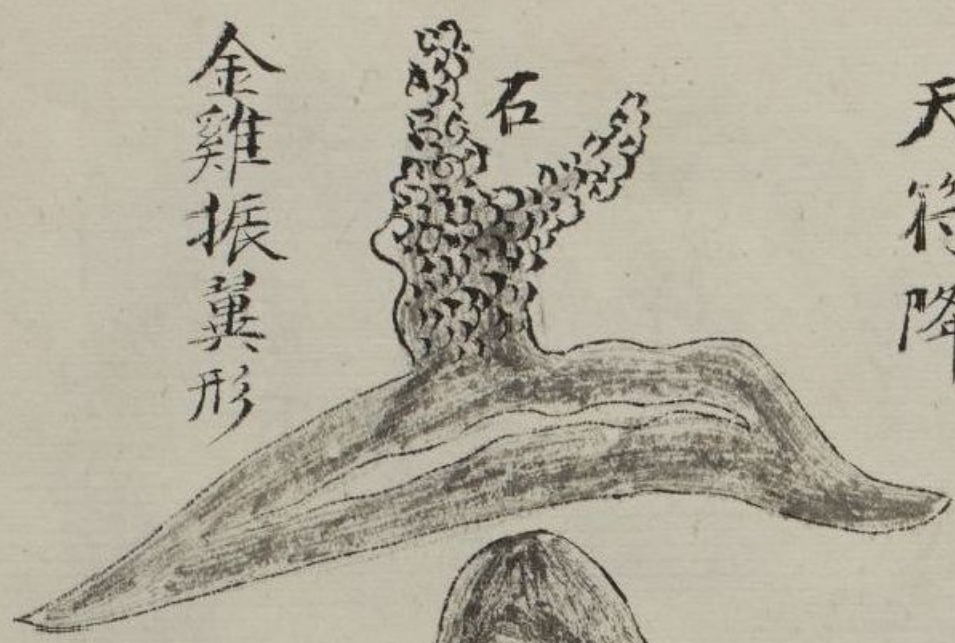 天符降
石
金雞振翼形